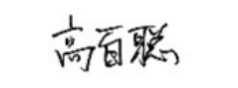 高百聪